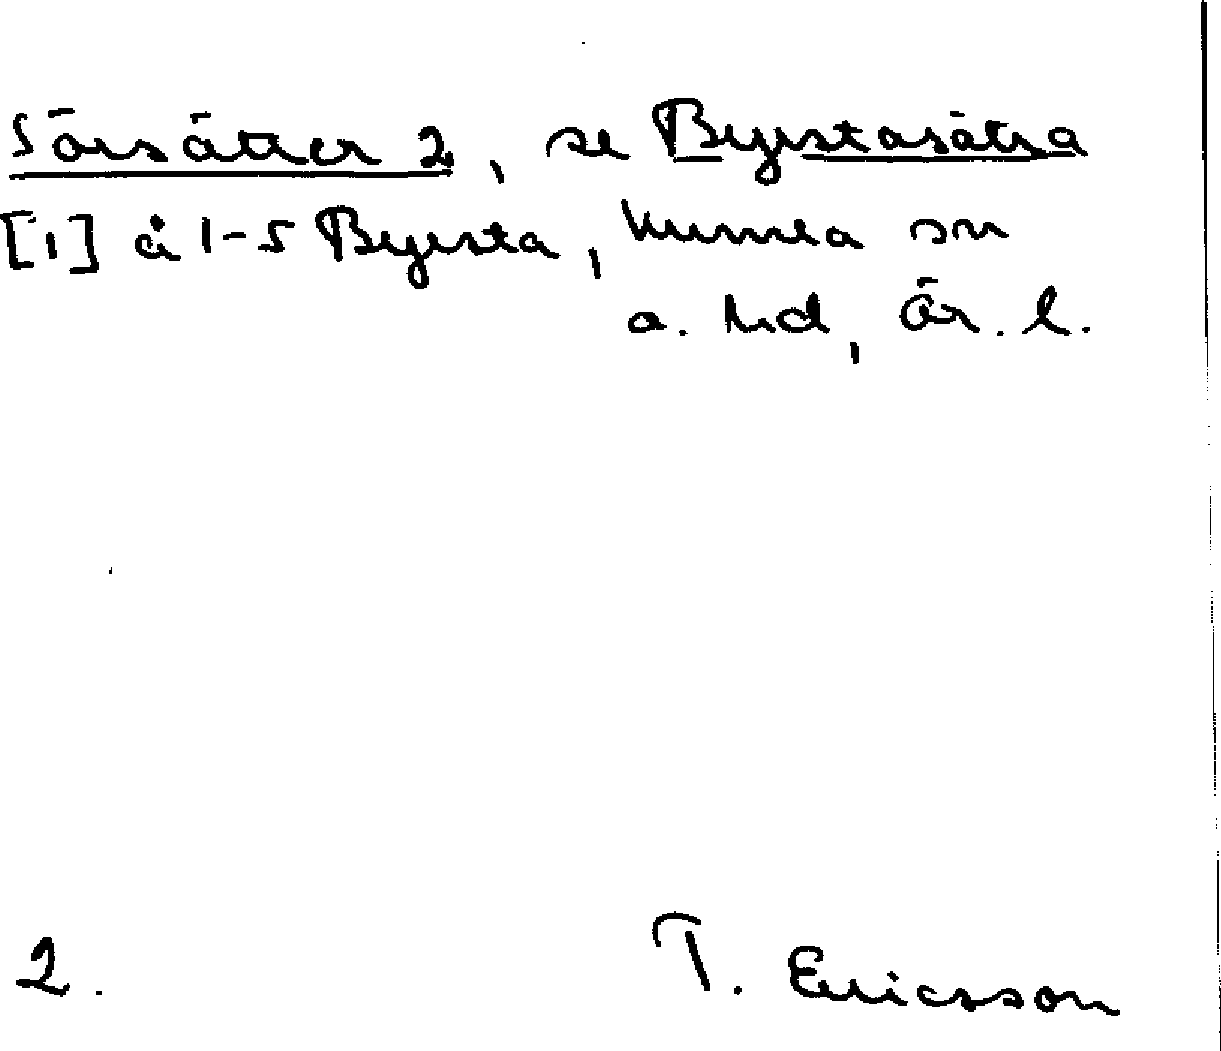 Sörsätter 2, se Byrstasätra
[1] å 1-5 Byrsta, Kumla sn
a. hd, Ör. l.
2. T. Ericsson